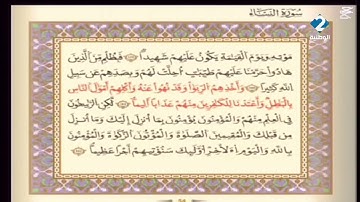 سورة النساء
2
الوطنية
موته ويوم القيمة يكون عليهم شهيدا فبظلم من الذين
هادوا حرمنا عليهم طيبت أحلت لهم وبصدهم عن سبيل
الله كثيرا وأخذهم الربوا وقد نهوا عنه وأكلهم أموال الناس
بالبطل وأعتدنا للكفرين منهم عذابا أليما لكن الرسخون
في العلم منهم والمؤمنون يؤمنون بما أنزل إليك وما أنزل
من قبلك والمقيمين الصلوة والمؤتون الزكوة والمؤمنون
بالله واليوم الآخر أولئك سنؤتيهم أجرا عظيما